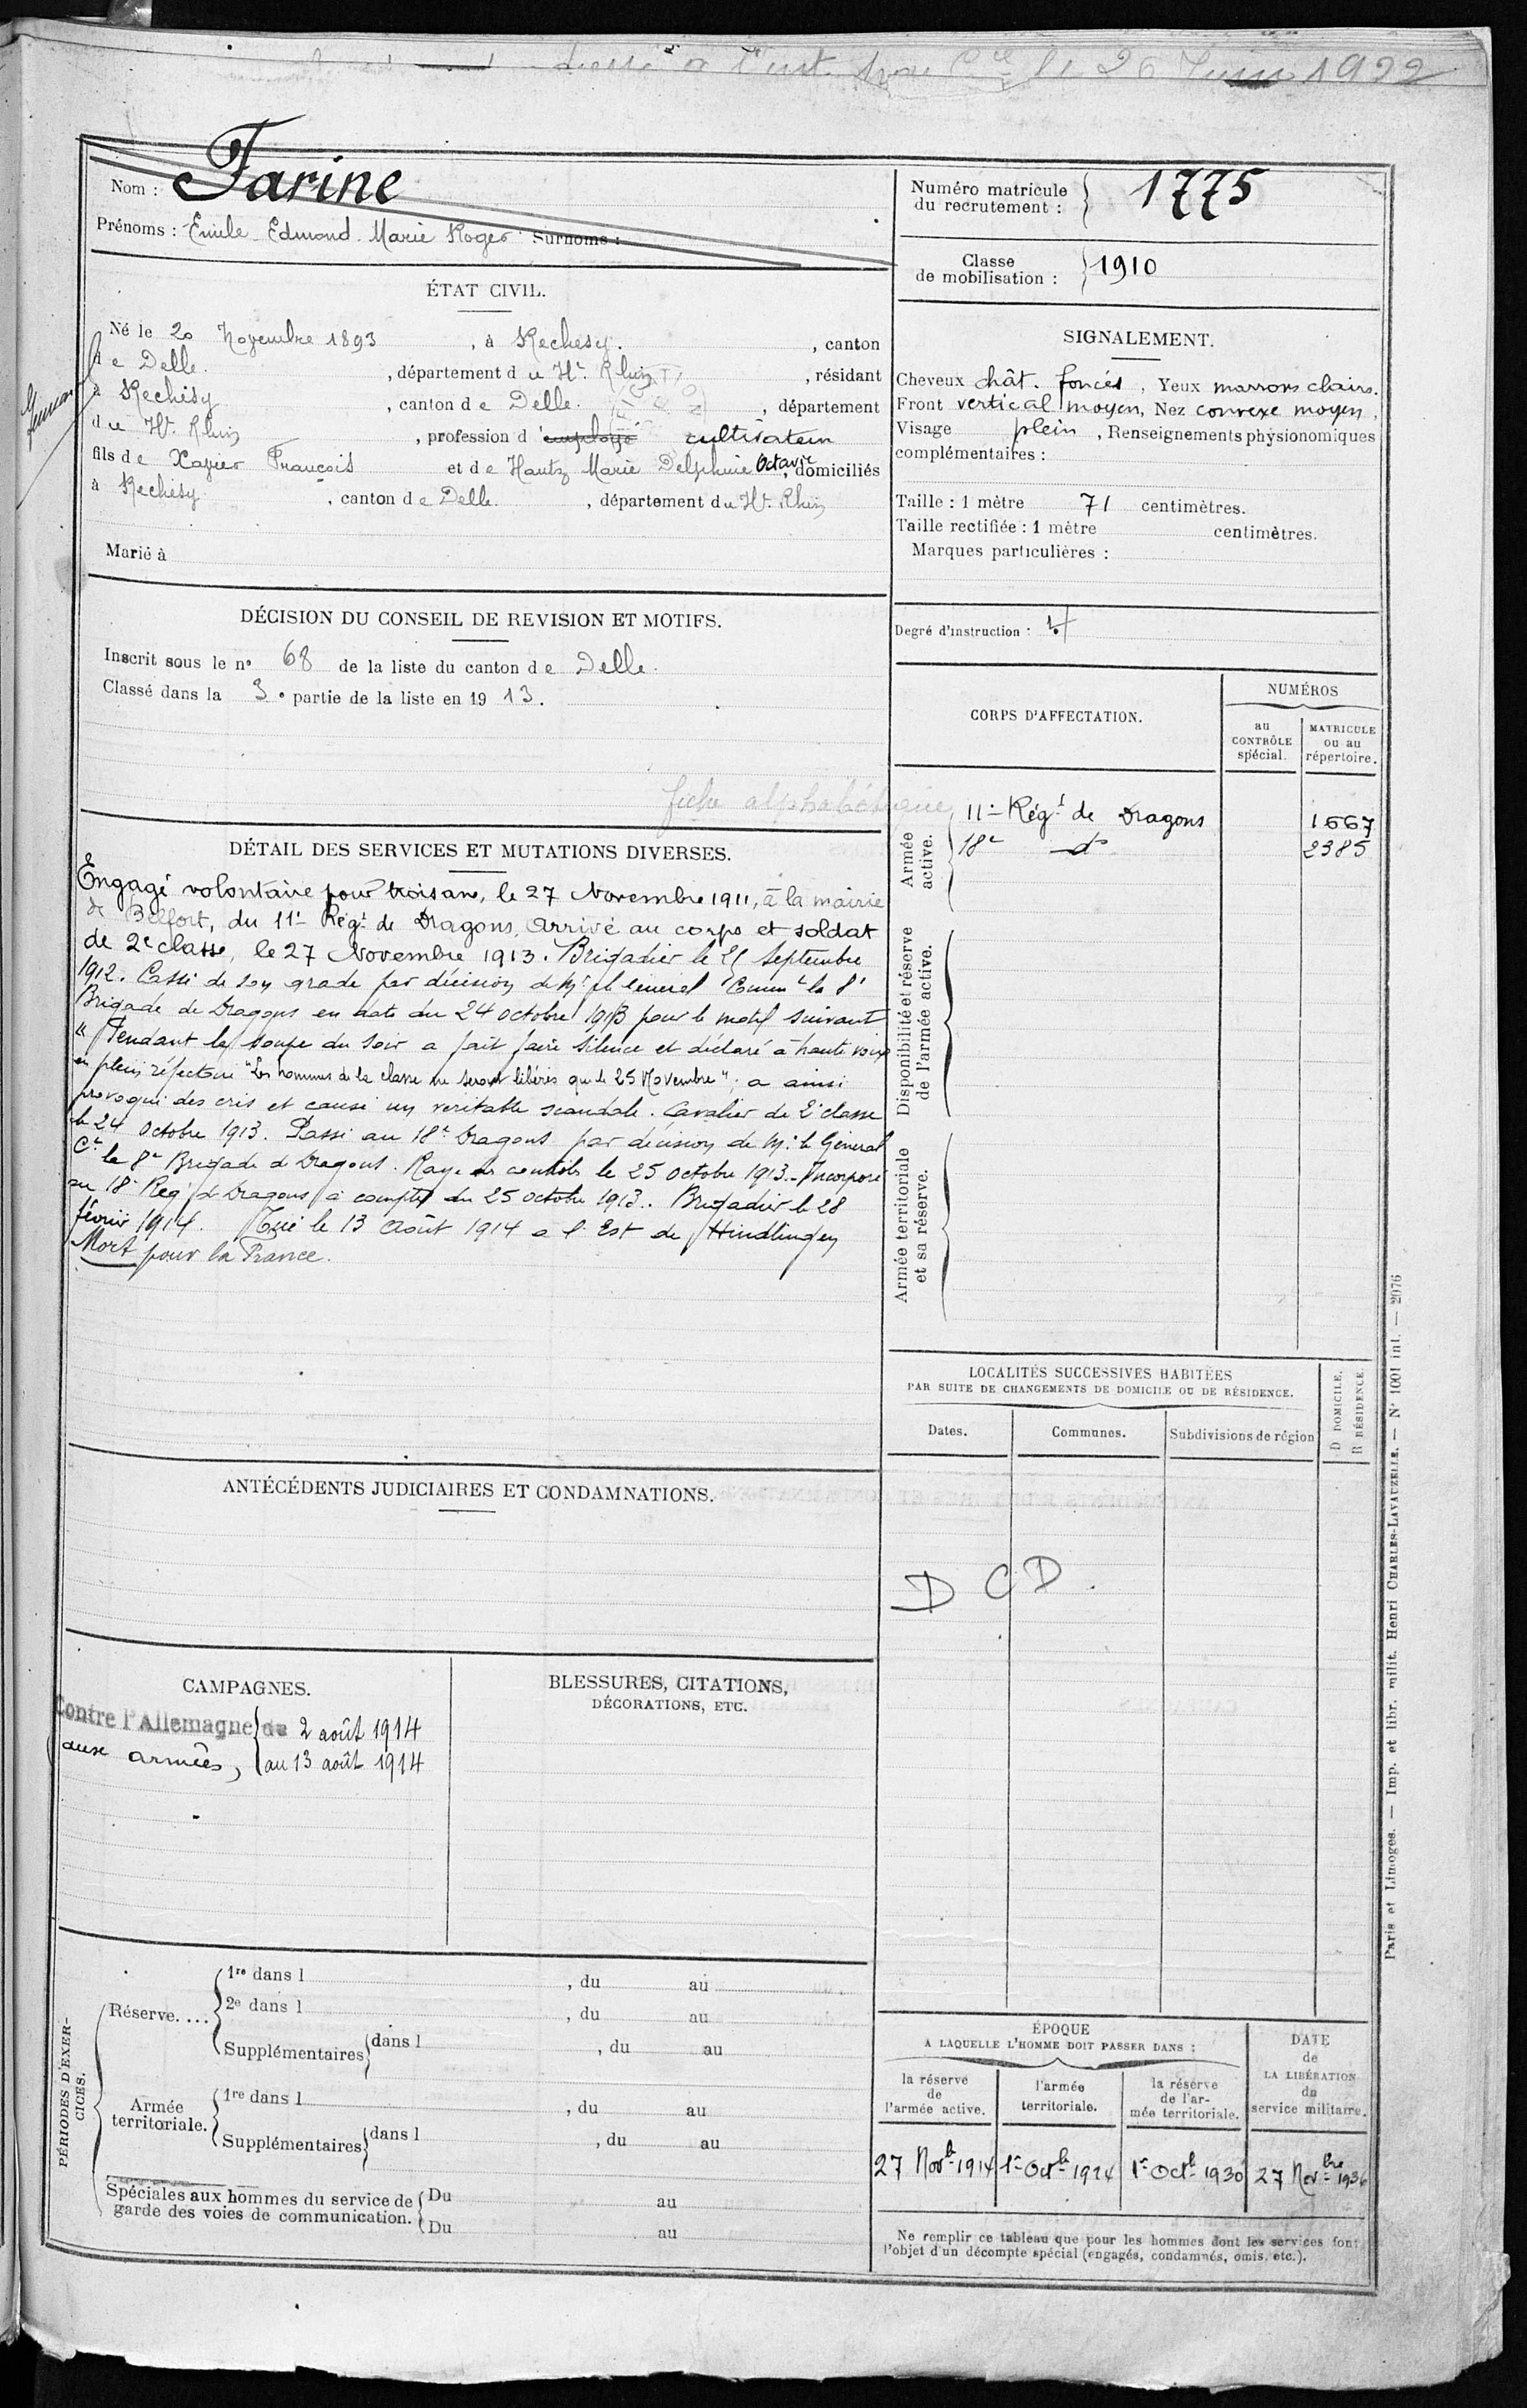 adressé à l'inst. le 26 Juin 1922
Nom : Farine
Prénoms : Emile Edmond Marie Roger Surnoms :
Numéro matricule du recrutement : 1775
Classe de mobilisation : 1910
ÉTAT CIVIL.
Né le 20 Novembre 1893, à Rechesy, canton
de Delle, département du Ht. Rhin, résidant
à Rechésy, canton de Delle, département
du Ht. Rhin, profession d'employé cultivateur
fils de Xavier François et de Hantz Marie Delphine Octavie, domiciliés
à Rechésy, canton de Delle, département du Ht. Rhin
Marié à
SIGNALEMENT.
Cheveux chât. foncés, Yeux marrons clairs.
Front vertical moyen, Nez convexe moyen,
Visage plein, Renseignements physionomiques
complémentaires :
Taille : 1 mètre 71 centimètres.
Taille rectifiée : 1 mètre centimètres.
Marques particulières :
Degré d'instruction :
DÉCISION DU CONSEIL DE REVISION ET MOTIFS.
Inscrit sous le n° 68 de la liste du canton de Delle.
Classé dans la 3e partie de la liste en 1913.
fiche alphabétique
CORPS D'AFFECTATION.
NUMÉROS
au CONTRÔLE spécial.
MATRICULE ou au répertoire.
Armée active.
11e Régt de Dragons 1667
18e do 2385
Disponibilité et réserve de l'armée active.
Armée territoriale et sa réserve.
DÉTAIL DES SERVICES ET MUTATIONS DIVERSES.
Engagé volontaire pour trois ans, le 27 Novembre 1911, à la mairie
de Belfort, du 11e Régt de Dragons, Arrivé au corps et soldat
de 2e classe, le 27 Novembre 1913. Brigadier le Septembre
1912. Cassé de son grade par décision de Mr le Général Commt la 8e
Brigade de Dragons en date du 24 octobre 1913 pour le motif suivant
" Pendant la soupe du soir a fait faire silence et déclaré à haute voix
en plein réfectoire "Les hommes de la classe ne seront libérés que le 25 Novembre" ; a ainsi
provoqué des cris et causé un veritable scandale. Cavalier de 2e classe
le 24 Octobre 1913. Passé au 18e Dragons par décision de Mr le Général
Ct la 8e Brigade de Dragons. Rayé des contrôles le 25 octobre 1913. Incorporé
au 18e Régt de Dragons à compter du 25 octobre 1913. Brigadier le 28
février 1914. Tué le 13 Août 1914 à l'Est de Hindlingen
Mort pour la France.
LOCALITÉS SUCCESSIVES HABITÉES
PAR SUITE DE CHANGEMENTS DE DOMICILE OU DE RÉSIDENCE.
Dates.
Communes.
Subdivisions de région
D DOMICILE.
R RÉSIDENCE
D C D.
ANTÉCÉDENTS JUDICIAIRES ET CONDAMNATIONS.
CAMPAGNES.
Contre l'Allemagne du 2 août 1914
aux armées, au 13 août 1914
BLESSURES, CITATIONS,
DÉCORATIONS, ETC.
PÉRIODES D'EXERCICES.
Réserve....
1re dans l , du au
2e dans l , du au
Supplémentaires dans l , du au
Armée territoriale.
1re dans l , du au
Supplémentaires dans l , du au
Spéciales aux hommes du service de
garde des voies de communication.
Du au
Du au
ÉPOQUE
A LAQUELLE L'HOMME DOIT PASSER DANS :
la réserve de l'armée active.
l'armée territoriale.
la réserve de l'armée territoriale.
DATE de LA LIBÉRATION du service militaire.
27 Novb 1914
1er Octb 1924
1er Octb 1930
27 Novbre 1936
Ne remplir ce tableau que pour les hommes dont les services font
l'objet d'un décompte spécial (engagés, condamnés, omis, etc.).
Paris et Limoges. — Imp. et libr. milit. Henri CHARLES-LAVAUZELLE. — N° 1001 int. — 2076